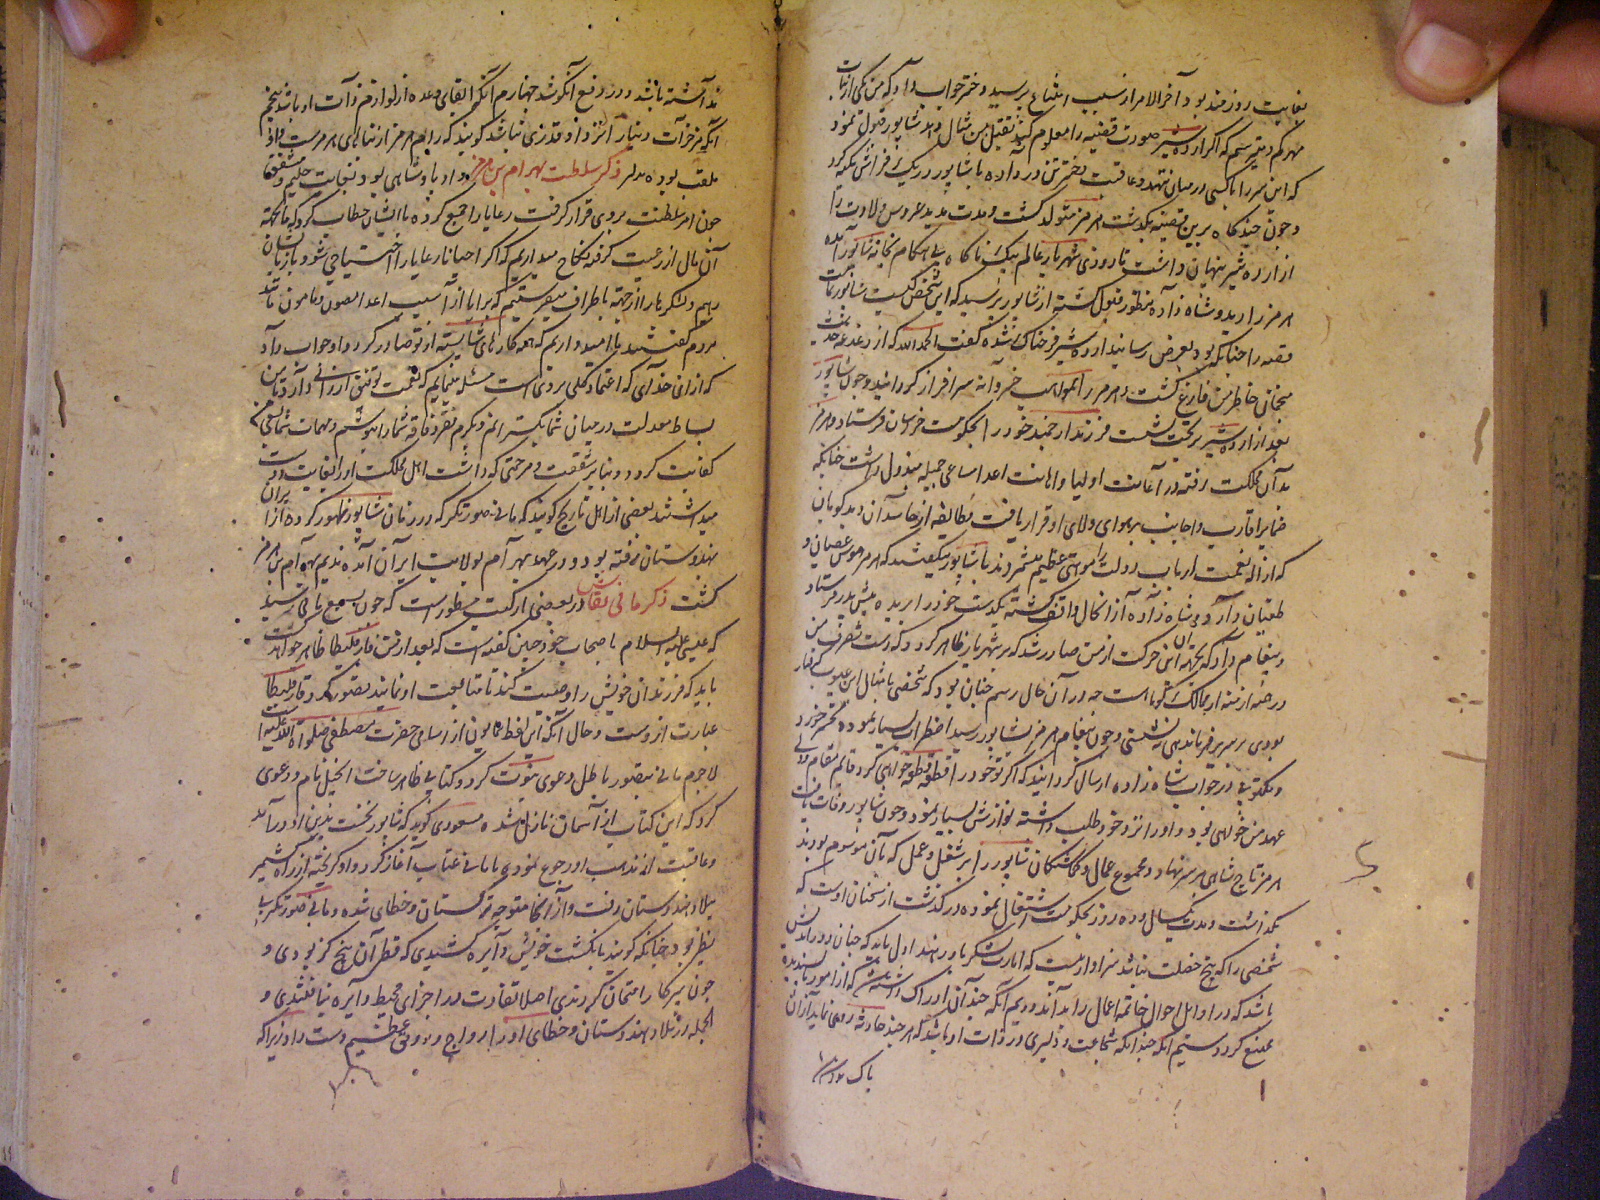 بغایت روزمند بود آخر الامر از سبب امتناع پرسید دختر جواب داد که من یکی از بنات
مهرکم و میترسم که اگر اردشیر صورت قضیه را معلوم کند بقتل من مثال دهد شاپور قبول نمود
که این سر را با کسی در میان ننهد و عاقبت دختر تن در داده با شاپور در یک فراش تکیه کرد
و چون چند گاه برین قضیه بگذشت هرمز متولد گشت و مدت مدید عروس ولادت را
از اردشیر پنهان داشت تا روزی شهریار عالم بیک ناگاه بی هنگام بخانه شاپور آمده
هرمز را دید و شاه زاده منظور قبول گشته از شاپور پرسید که این شخص کیست شاپور
قصه را چنانکه بود بعرض رسانید اردشیر فرحناک شده گفت الحمد لله که از دغدغه حدیث
منجمان خاطر من فارغ گشت و هرمز را بمواهب خسروانه سرافراز گردانید و چون شاپور
بعد از اردشیر بر تخت نشست فرزند ارجمند خود را بحکومت خراسان فرستاد و هرمز
بدان مملکت رفته در اعانت اولیا و اهانت اعدا مساعی جمیله مبذول داشت چنانکه
ضمایر اقارب و اجانب بر هوای ولای او قرار یافت و طایفه از حاسدان و بدگویان
که ازاله نعمت ارباب دولت را موهبتی عظیم میشمردند با شاپور میگفتند که هرمز هوس عصیان و
طغیان دارد و شاه زاده ازان حال واقف گشته یکدست خود را بریده پیش پدر فرستاد
و پیغام داد که بجهة آن این حرکت از من صادر شد که بر شهریار ظاهر گردد که دست تصرف من
در عرصه ممالک کوتاه است چه در آن حال رسم چنان بود که شخصی بامثال این عیوب گرفتار
بودی بر سریر فرماندهی ننشستی و چون پیغام هرمز بشاپور رسید اضطراب بسیار نمود و تحسر خورد
و مکتوبی در جواب شاه زاده ارسال گردانید که اگر تو خود را قطعه قطعه خواهی کرد قائم مقام و ولی
عهد من خواهی بود و او را نزد خود طلب داشته نوازش بسیار نمود و چون شاپور وفات یافت
هرمز تاج شاهی بر سر نهاد و مجموع عمال و گماشتگان شاپور را بر شغل و عمل که بآن موسوم بودند
بگذاشت و مدت یکسال و ده روز بحکومت اشتغال نموده درگذشت از سخنان اوست که
شخصی را که پنج خصلت نباشد سزاوار نیست که امارت لشکر باو دهند اول باید که چنان دوراندیش
باشد که در اوایل احوال خاتمه اعمال را بداند دویم آنکه چندان ادراک داشته باشد که از امور ناپسندیده
ممتنع گردد سیم آنکه چندانکه شجاعت و دلیری در ذات او باشد که هر چند حادثه روی نماید ازان
باک
نداشته باشد و در دفع آن کوشد چهارم آنکه ایفای وعده از لوازم ذات او باشد پنجم
آنکه مزخرفات دنیا را نزد او قدری نباشد گویند که رام هرمز از بناهای هرمز است و او
ملقب بوده بدلیر ذکر سلطنت بهرام بن هرمز و او پادشاهی بود بغایت حلیم و مشفق
چون امر سلطنت بروی قرار گرفت رعایا را جمع کرده با ایشان خطاب کرد که ما بجهة
آن مال از رعیت گرفته نگاه میداریم که اگر احیانا رعایا را احتیاجی شود باز بایشان
دهیم و لشکر ما را از جهة باطراف میفرستیم که برایا از آسیب اعدا مصون و مامون باشند
مردم گفتند ما امیدواریم که همه کارهای شایسته از تو صادر گردد او جواب داد
که ازان خدای که اعتماد کلی بروی است مسئلت مینمایم که بنعمت توفیق ارزانی دارد تا من
بساط معدلت در میان شما بگسترانم و بکرم تفقد فاقه شما را بپوشم و مهمات شما
کفایت گردد و بنابر شفقت و مرحمتی که داشت اهل مملکت او را بغایت دوست
میداشتند بعضی از اهل تاریخ گویند که مانی صورتگر که در زمان شاپور ظهور کرده از ایران
بهندوستان رفته بود و در عهد بهرام بولایت ایران آمده ندیم بهرام بن هرمز
گشت ذکر مانی نقاش در بعضی از کتب مسطور است که چون بسمع مانی رسید
که عیسی علیه السلام باصحاب خود چنین گفته است که بعد از من فارقلیطا ظاهر خواهد گشت
باید که فرزندان خویش را وصیت کنند تا متابعت او نمایند تصور کرد که فارقلیطا
عبارت ازوست و حال آنکه این لفظ همایون از اسامی حضرت مصطفی صلوات الله علیه است
لاجرم مانی بتصور باطل دعوی نبوت کرد و کتابی ظاهر ساخت انجیل نام و دعوی
کرد که این کتاب از آسمان نازل شده مسعودی گوید که شاپور نخست بدین او درآمد
و عاقبت از مذهب او رجوع نموده با مانی عتاب آغاز کرد و او گریخته از راه کشمیر
ببلاد هندوستان رفت و از آنجا متوجه ترکستان و خطای شده و مانی صورتگر بی
نظیر بود چنانکه گویند بانگشت خویش دایره کشیدی که قطر آن پنج گز بودی و
چون بپرگار امتحان کردندی اصلا تفاوت در اجزای محیط دایره نیافتندی و
الجمله در بلاد هندوستان و خطای او را رواج و رونقی عظیم دست داد زیرا که